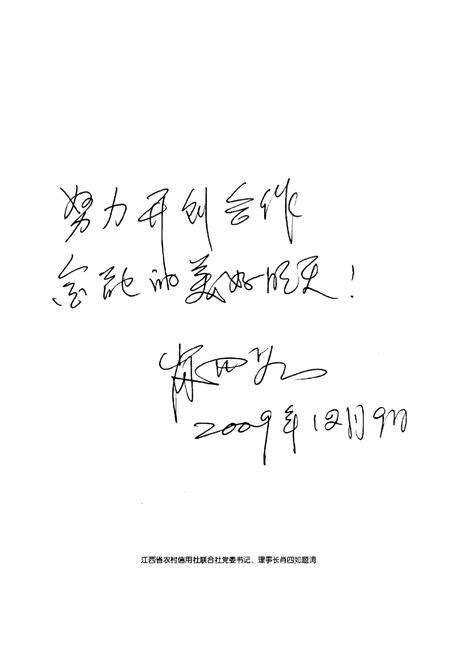 努力开创合作
金融的美好明天！
肖四如
2009年12月9日
江西省农村信用社联合社党委书记、理事长肖四如题词